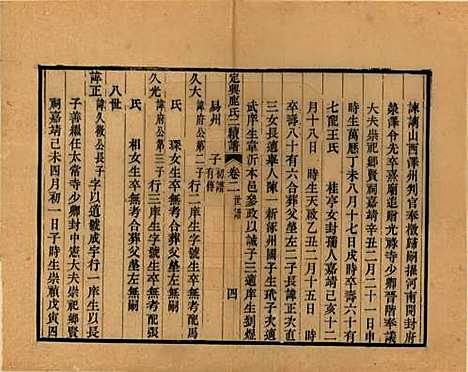 諫謫山西澤州判官奉檄歸嗣擢河南開封府
滎澤令先卒喜廟追贈光祿寺少卿晉階奉議
大夫崇祀鄉賢祠嘉靖辛丑二月二十一日申
時生萬曆丁未八月十七日戌時卒壽六十有
七配王氏 桂亭女封孺人嘉靖己亥十二
月十八日 時生天啟乙丑二月十五日 時
卒壽八十有六合葬父塋左二子長諱正次適
三女長適舉人陳一新涿州國子生玳子次適
武庠生韋沂本邑參政以誠子三適庠生劉煃
定興鹿氏二續譜 卷二 世譜 四
易州 子 初譜有傳
久大 諱府公第二子 行二庠生生卒無考配馬
氏 琛女生卒無考合葬父塋左無嗣
久光 諱府公第三子 行三庠生生卒無考配張
氏 相女生卒無考合葬父塋左無嗣
八世
諱正 諱久徵公長子 字以道號成宇行一庠生以
子善繼任太常寺少卿封中憲大夫崇祀鄉賢
祠嘉靖己未四月初一日子時生崇禎戊寅四